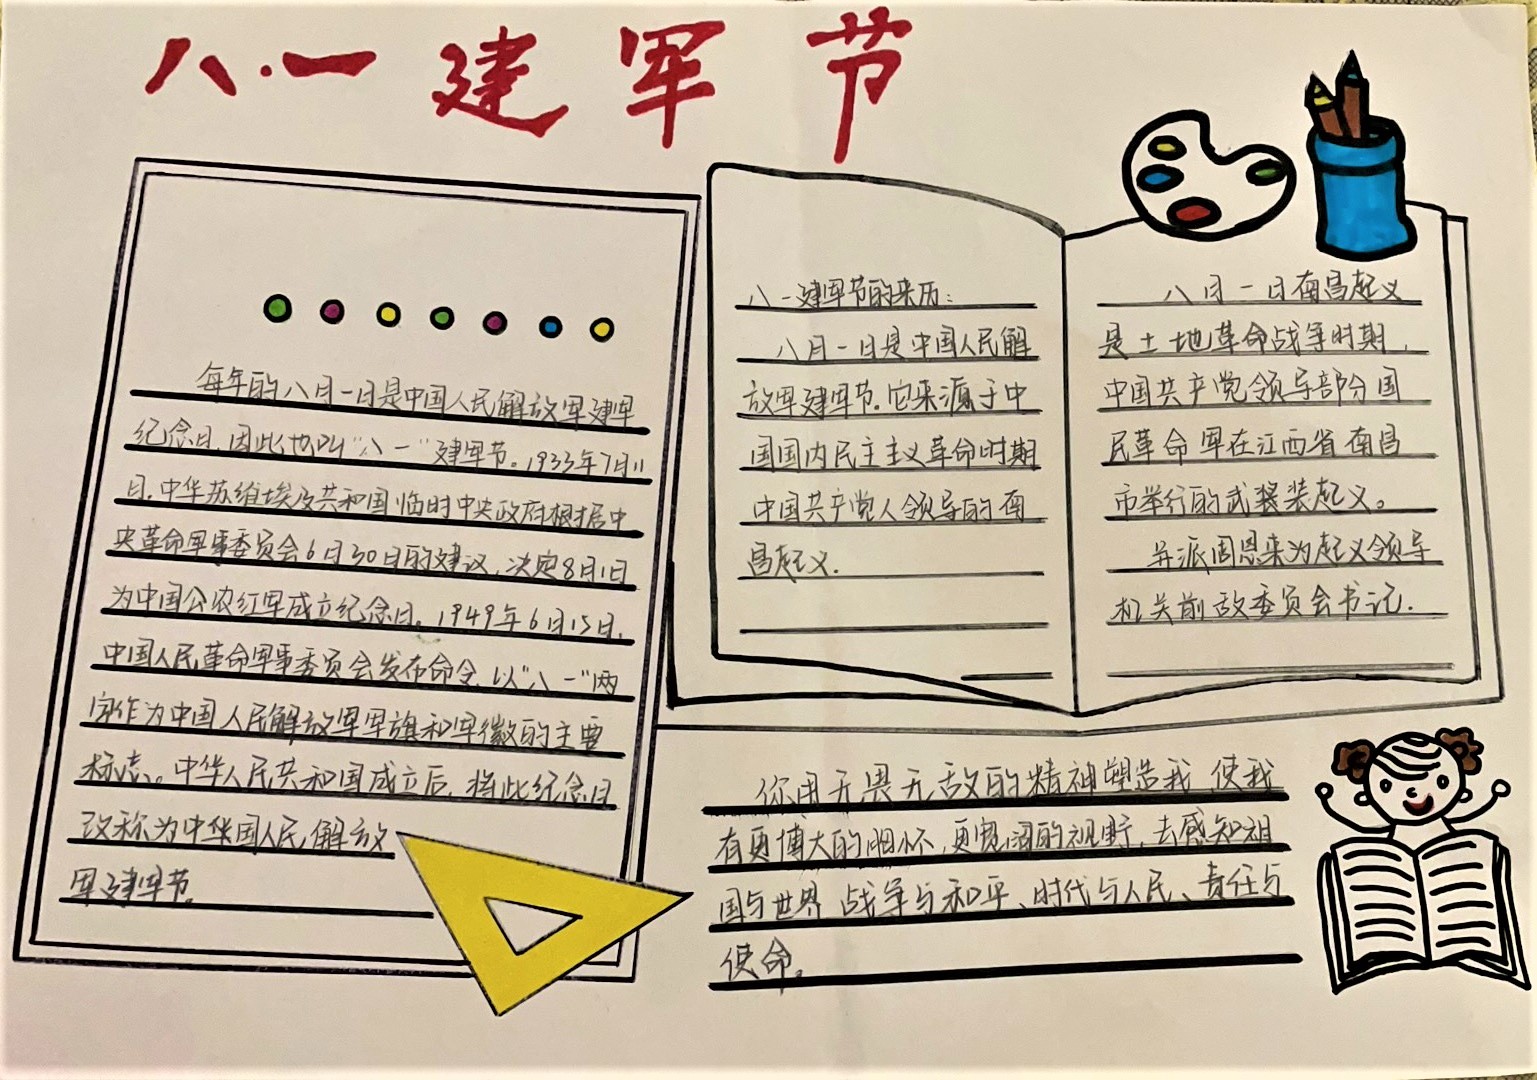 八·一建军节
每年的八月一日是中国人民解放军建军
纪念日,因此也叫"八一"建军节。1933年7月11
日,中华苏维埃及共和国临时中央政府根据中
央革命军事委员会6月30日的建议,决定8月1日
为中国公农红军成立纪念日。1949年6月15日,
中国人民革命军事委员会发布命令,以"八一"两
字作为中国人民解放军军旗和军徽的主要
标志。中华人民共和国成立后,将此纪念日
改称为中华国人民解放
军建军节。
八一建军节的来历:
八月一日是中国人民解
放军建军节.它来源于中
国国内民主主义革命时期
中国共产党人领导的南
昌起义.
八月一日南昌起义
是土地革命战争时期,
中国共产党领导部分国
民革命军在江西省南昌
市举行的武装装起义。
并派周恩来为起义领导
机关前敌委员会书记.
你用无畏无敌的精神塑造我,使我
有更博大的胸怀,更宽阔的视野,去感知祖
国与世界 战争与和平、时代与人民、责任与
使命。